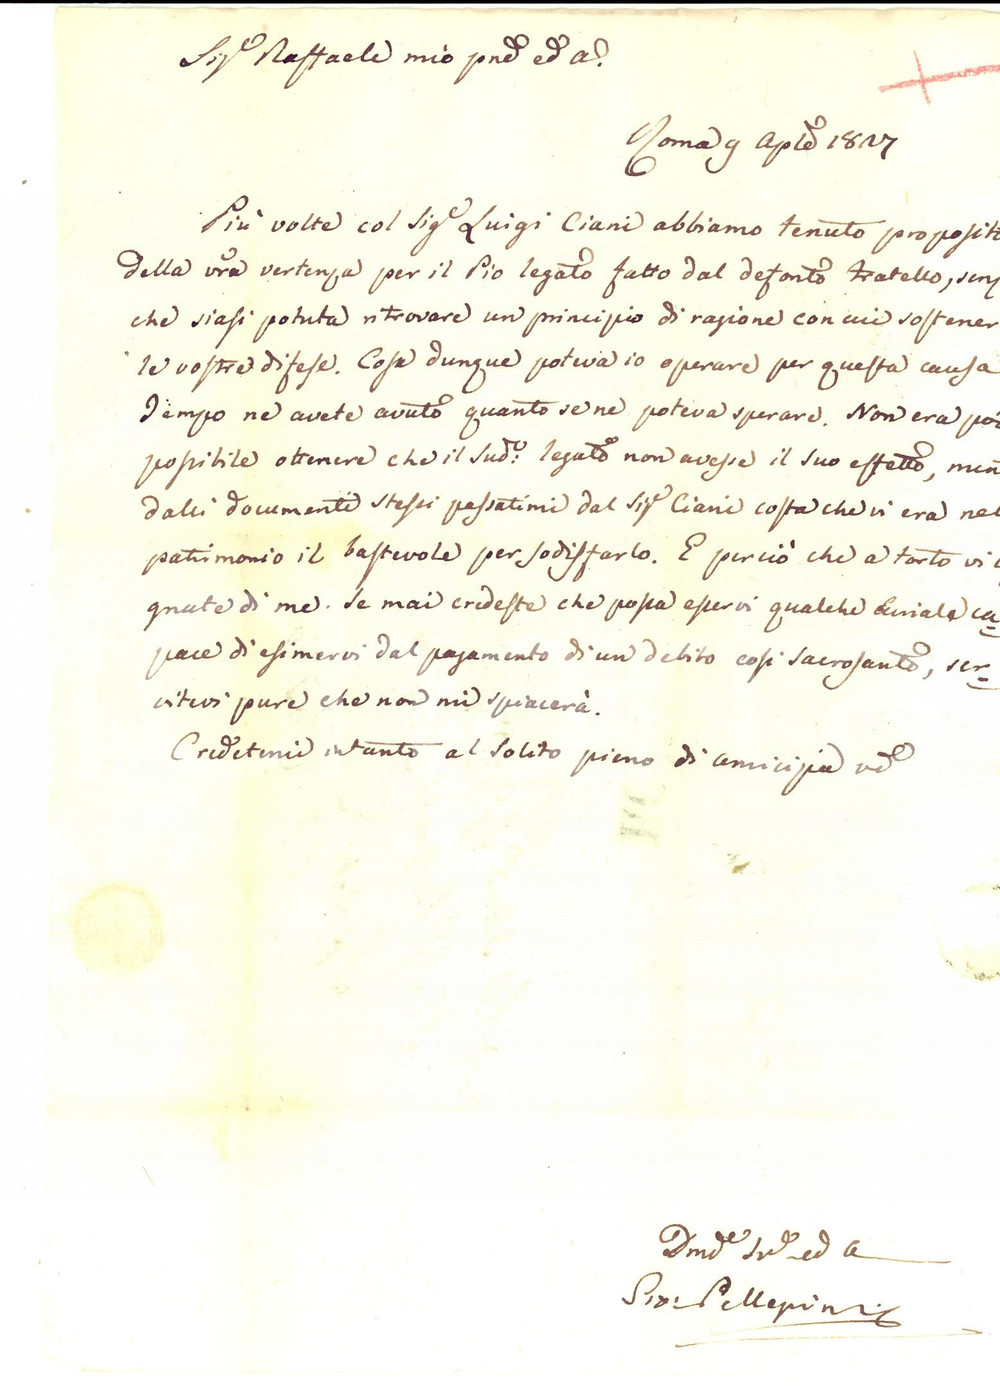 Sig.e Raffaele mio pne ed a.
Roma 9 Aple 1827
Più volte col Sig.e Luigi Ciani abbiamo tenuto proposit
della vra vertenza per il Pio legato fatto dal defonto fratello, senz
che siasi potuta ritrovare un principio di ragione con cui sostener
le vostre difese. Cosa dunque poteva io operare per questa causa
Tempo ne avete avuto quanto se ne poteva sperare. Non era poi
possibile ottenere che il Sud.e legato non avesse il suo effetto, men
dalli documenti stessi passatimi dal Sig.e Ciani costa che vi era nel
patrimonio il bastevole per sodisfarlo. E perciò che a torto vi
gnate di me. Se mai credeste che possa esservi qualche Curiale ca=
pace di esimervi dal pagamento di un debito così sacrosanto, ser=
vitevi pure che non mi spiacerà.
Credetemi intanto al solito pieno di amicizia
Dmo Sre ed A
Pellegrini